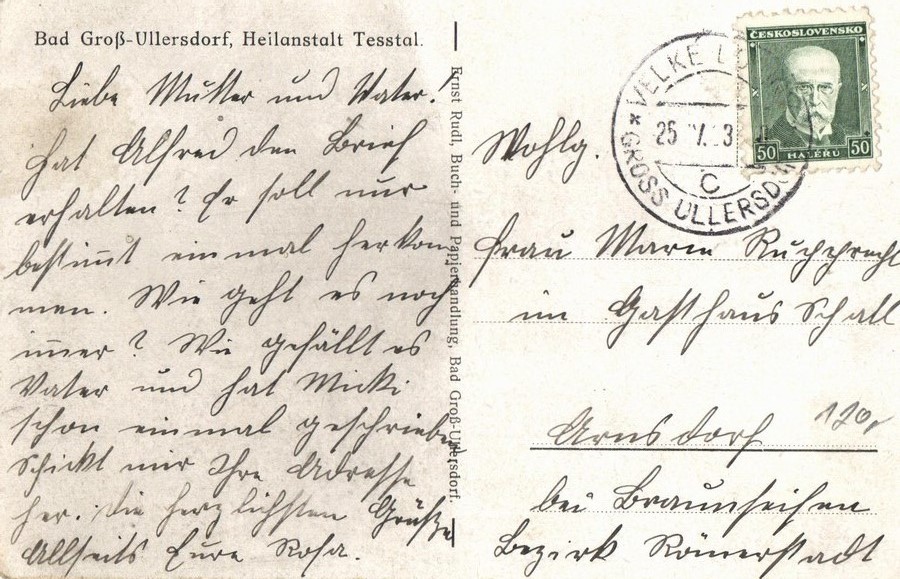 Bad Groß-Ullersdorf, Heilanstalt Tesstal.
Liebe Mutter und Vater!
Hat Alfred den Brief
erhalten? Er soll nur
bestim̅t einmal herkom-
men. Wie geht es noch
im̅er? Wie gefällt es
Vater und hat Micki
schon einmal geschrieben
Schickt mir Ihre Adresse
her. Die herzlichsten Grüße
Allseits Eure Rosa.
Ernst Rudl, Buch- und Papierhandlung, Bad Groß-Ullersdorf.
ČESKOSLOVENSKO
50 HALÉRŮ 50
VELKÉ
25 V. 3
C
GROSS ULLERSD
Wohlg.
Frau Marie Rupprecht
im Gasthaus Schall
Arnsdorf
120,
bei Braunseifen
Bezirk Römerstadt